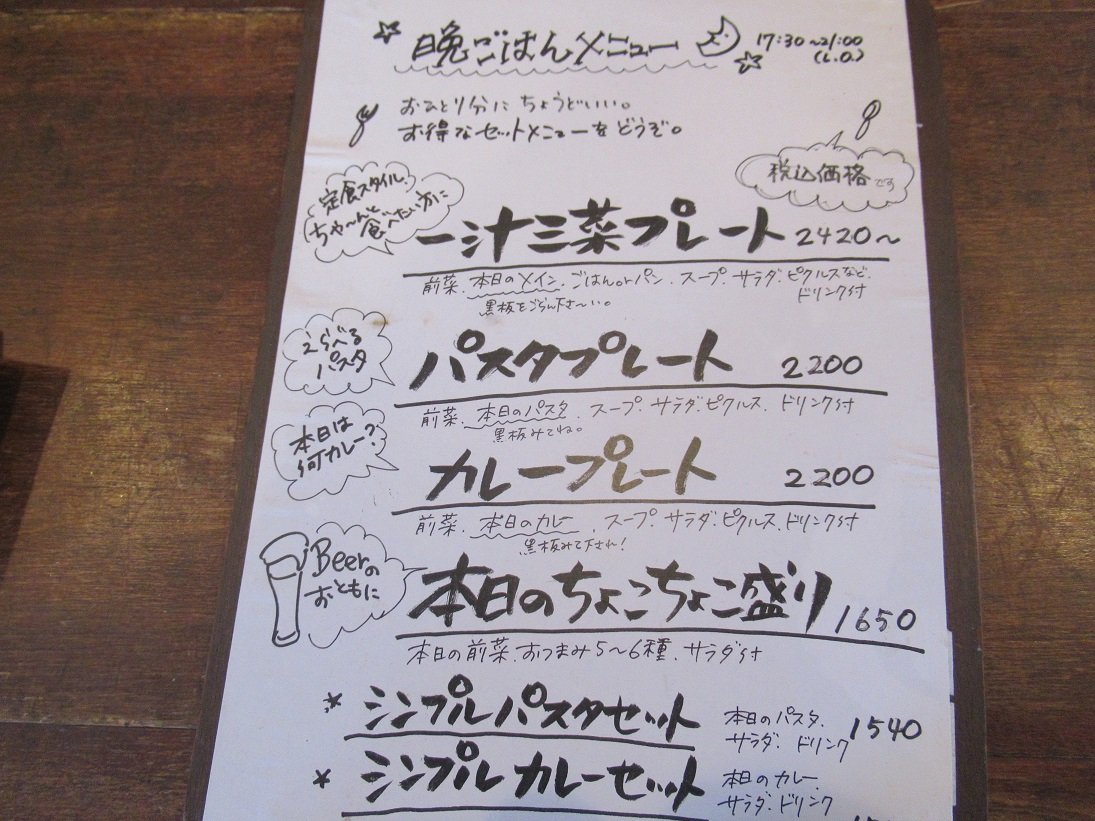 晩ごはんメニュー 17:30～21:00
(L.O.)
おひとり分にちょうどいい。
お得なセットメニューをどうぞ。
税込価格です
定食スタイル、
ちゃ～んと
食べたい方に
一汁三菜プレート 2420～
前菜、本日のメイン、ごはんorパン、スープ、サラダ、ピクルスなど、
ドリンク付
黒板をごらん下さ～い。
えらべる
パスタ
パスタプレート 2200
前菜、本日のパスタ、スープ、サラダ、ピクルス、ドリンク付
黒板みてね。
本日は
何カレー?
カレープレート 2200
前菜、本日のカレー、スープ、サラダ、ピクルス、ドリンク付
黒板みて下され!
Beerの
おともに
本日のちょこちょこ盛り 1650
本日の前菜、おつまみ5～6種、サラダ付
シンプルパスタセット 本日のパスタ、
サラダ、ドリンク 1540
シンプルカレーセット 本日のカレー、
サラダ、ドリンク